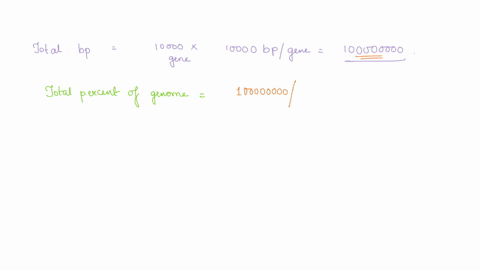 Total bp = 10000 × 10000 bp/gene = 100000000
gene
Total percent of genome = 100000000/